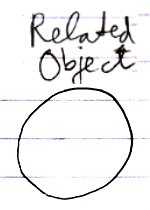 Related
Object